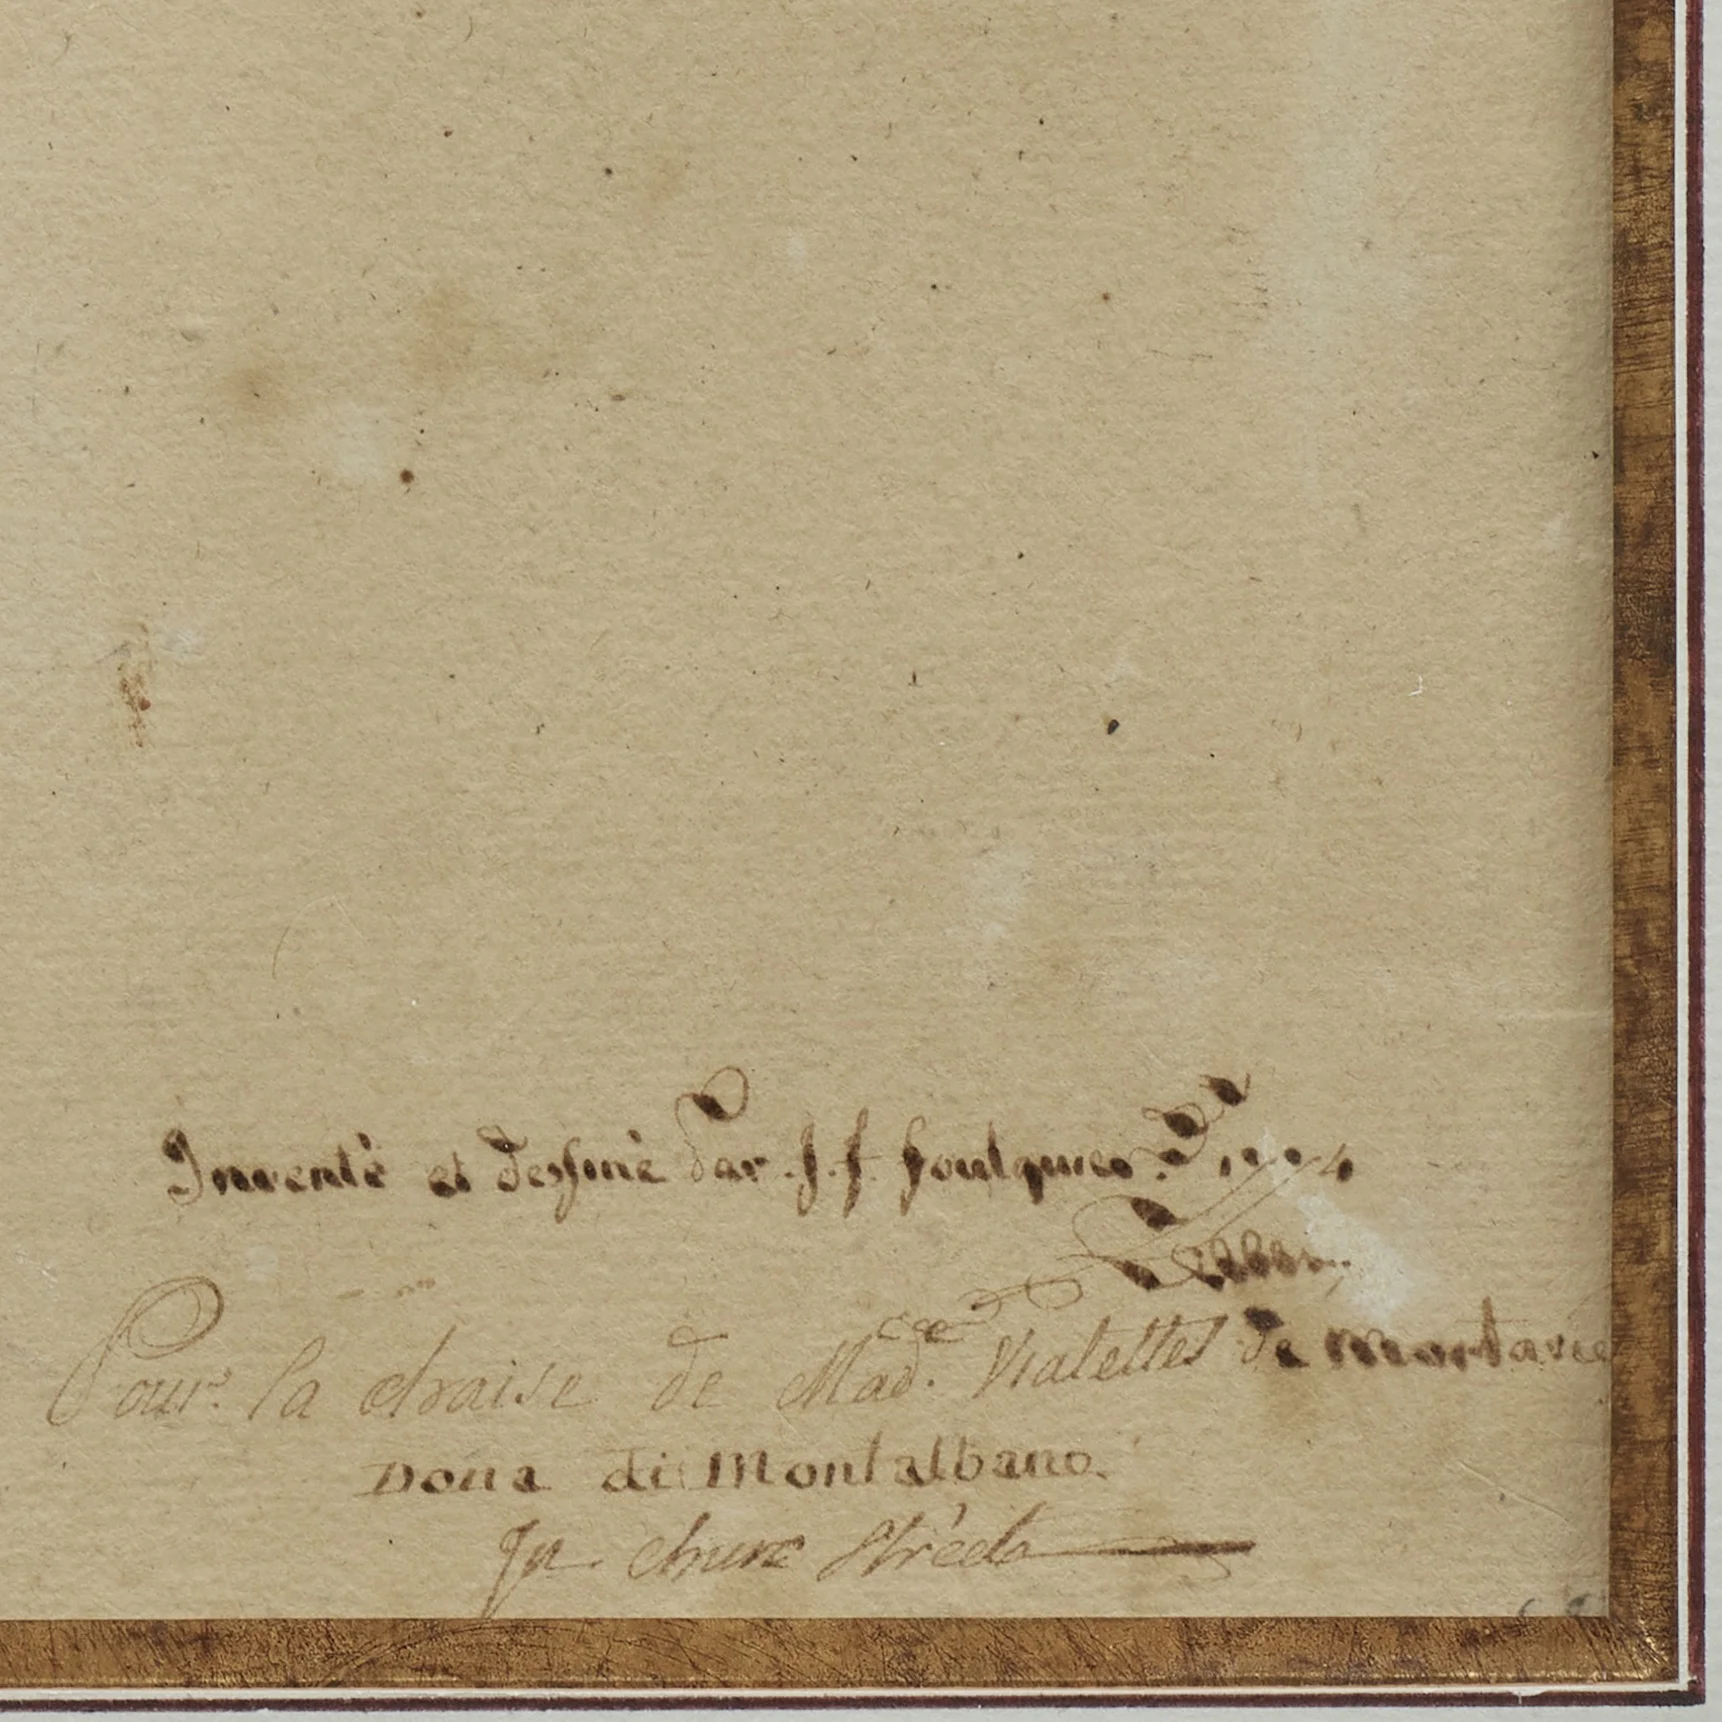 Inventé et dessiné Par J. f. foulquier
Pour la chaise de Mad.ee Vialettes de mortarie
Dona di Montalbano.
In chure Strèda